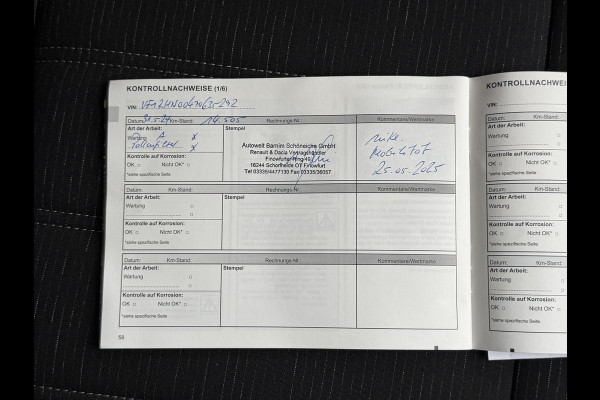 KONTROLLNACHWEISE (1/6)
VIN:
Datum: Km-Stand: 14.505 Rechnungs-Nr.: Kommentare/Wertmarke
Art der Arbeit: Stempel
Wartung A x
Pollenfilter x
Autowelt Barnim Schöneiche GmbH
Renault & Dacia Vertragshändler
Finowfurter Ring
16244 Schorfheide OT Finowfurt
Tel 03335/4477130 Fax 03335/36057
Mobilität
25.05.2025
Kontrolle auf Korrosion:
OK □ Nicht OK* □
*siehe spezifische Seite
Datum: Km-Stand: Rechnungs-Nr.: Kommentare/Wertmarke
Art der Arbeit: Stempel
Wartung □
Kontrolle auf Korrosion:
OK □ Nicht OK* □
*siehe spezifische Seite
Datum: Km-Stand: Rechnungs-Nr.: Kommentare/Wertmarke
Art der Arbeit: Stempel
Wartung □
Kontrolle auf Korrosion:
OK □ Nicht OK* □
*siehe spezifische Seite
58
KONTROLLNACHWEISE
VIN:
Datum: Km-Stand:
Art der Arbeit:
Wartung
Kontrolle auf Korrosion:
OK □ Nicht OK*
*siehe spezifische Seite
Datum: Km-Stand:
Art der Arbeit:
Wartung
Kontrolle auf Korrosion:
OK □ Nicht OK*
*siehe spezifische Seite
Datum: Km-Stand:
Art der Arbeit:
Wartung
Kontrolle auf Korrosion:
OK □ Nicht OK*
*siehe spezifische Seite